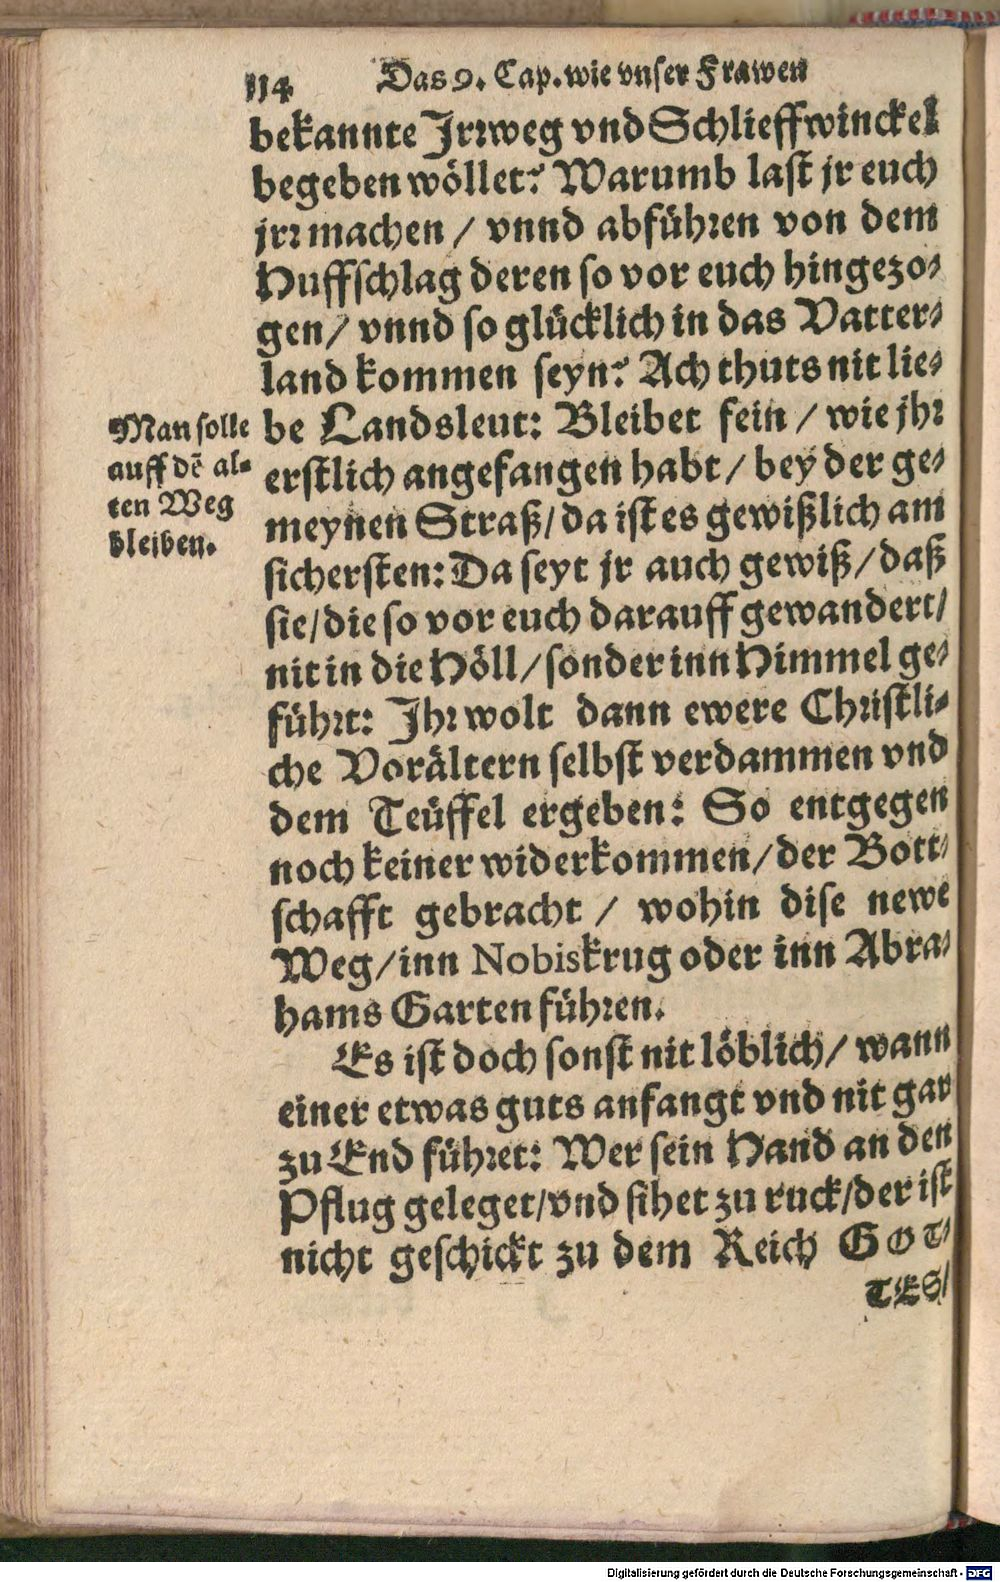 114 Das 9. Cap. wie vnser Frawen
bekannte Jrrweg vnd Schlieffwinckel
begeben wöllet? Warumb last jr euch
jrr machen / vnnd abführen von dem
Huffschlag deren so vor euch hingezo-
gen / vnnd so glücklich in das Vatter-
land kommen seyn? Ach thuts nit lie-
be Landsleut: Bleibet fein / wie jhr
erstlich angefangen habt / bey der ge-
meynen Straß / da ist es gewißlich am
sichersten: Da seyt jr auch gewiß / daß
sie / die so vor euch darauff gewandert /
nit in die Höll / sonder inn Himmel ge-
führt: Jhr wolt dann ewere Christli-
che Vorältern selbst verdammen vnd
dem Teüffel ergeben: So entgegen
noch keiner widerkommen / der Bott-
schafft gebracht / wohin dise newe
Weg / inn Nobiskrug oder inn Abra-
hams Garten führen.
Es ist doch sonst nit löblich / wann
einer etwas guts anfangt vnd nit gar
zu End führet: Wer sein Hand an den
Pflug geleget / vnd sihet zu ruck / der ist
nicht geschickt zu dem Reich GOT-
TES /
Man solle
auff dẽ al-
ten Weg
bleiben.
Digitalisierung gefördert durch die Deutsche Forschungsgemeinschaft - DFG